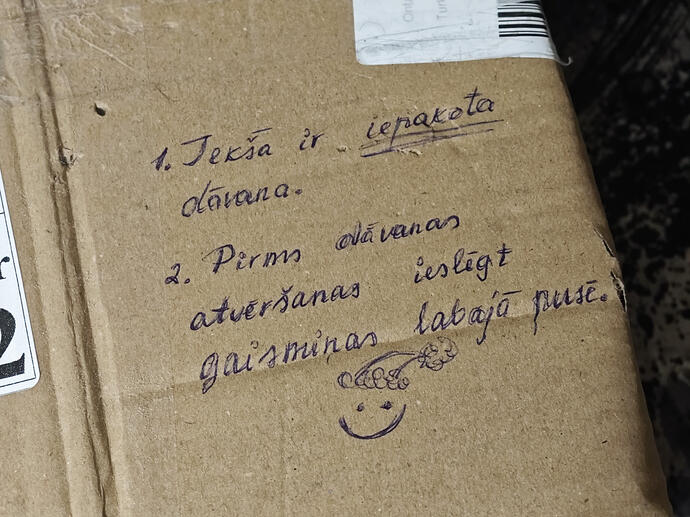 1. Iekšā ir iepakota
dāvana.
2. Pirms dāvanas
atvēršanas ieslēgt
gaismiņas labajā pusē.
2